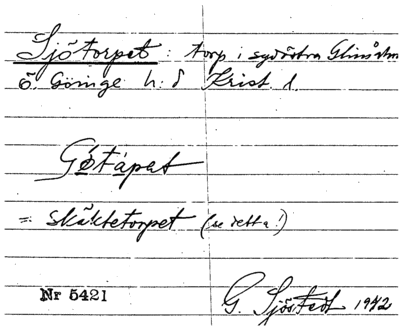 Sjötorpet: torp i sydöstra Glimåkra
Ö. Göinge h:d Krist. l.
Götápet
= skäktetorpet (se detta!)
Nr 5421 G. Sjöstedt 1942